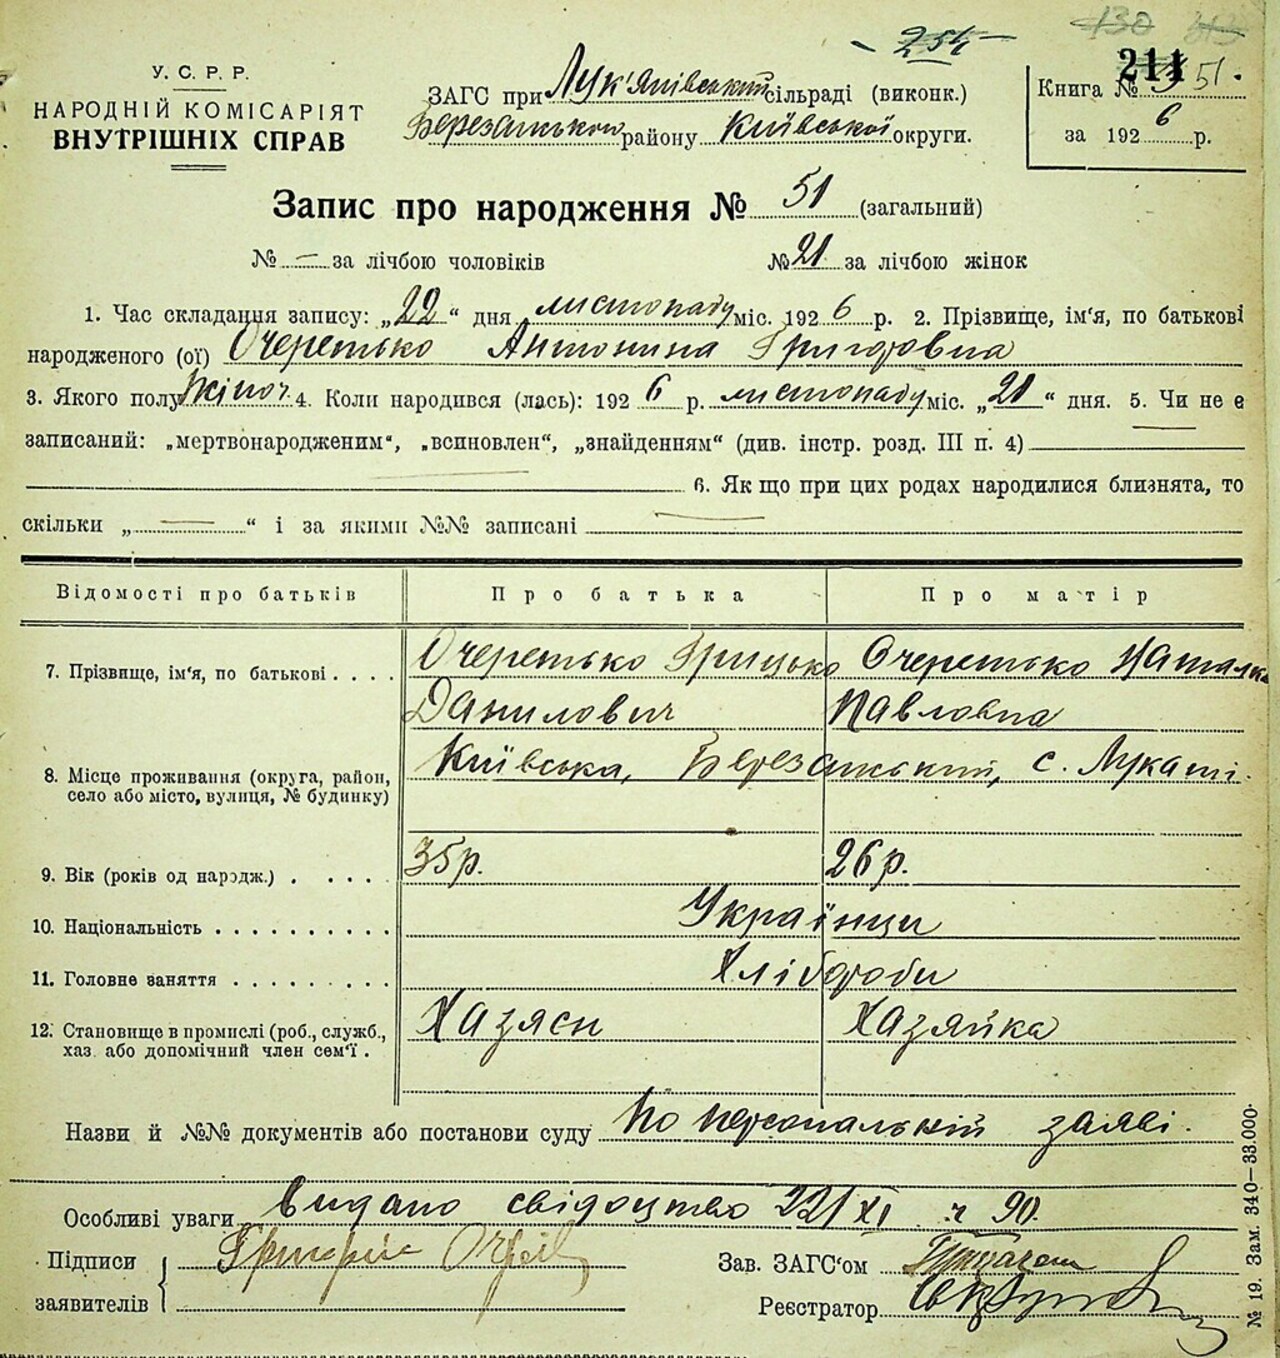 254
У. С. Р. Р.
НАРОДНІЙ КОМІСАРІЯТ
ВНУТРІШНІХ СПРАВ
ЗАГС при Лук'янівський сільраді (виконк.)
Березанською району Київської округи.
Книга № 211 51.
за 1926 р.
Запис про народження № 51 (загальний)
№ — за лічбою чоловіків № 21 за лічбою жінок
1. Час складання запису: „22“ дня листопаду міс. 1926 р. 2. Прізвище, ім'я, по батькові
народженого (ої) Очеретько Антонина Григоровна
3. Якого полу жіноч. 4. Коли народився (лась): 1926 р. листопаду міс. „21“ дня. 5. Чи не є
записаний: „мертвонародженим“, „всиновлен“, „знайденням“ (див. інстр. розд. III п. 4)
6. Якщо при цих родах народилися близнята, то
скільки „ — “ і за якими №№ записані —
Відомості про батьків Про батька Про матір
7. Прізвище, ім'я, по батькові Очеретько Грицько Очеретько Наталка
Данилович Павловна
8. Місце проживання (округа, район,
село або місто, вулиця, № будинку) Київська, Березанський, с. Лукаші.
9. Вік (років од народж.) 35р. 26р.
10. Національність Українци
11. Головне заняття Хлібороби
12. Становище в промислі (роб., служб.,
хаз. або допомічний член сем'ї. Хазяєн Хазяйка
Назви й №№ документів або постанови суду По персональній заяві.
Особливі уваги Видано свідоцтво 22/XI ч 90.
Підписи
заявителів
Зав. ЗАГС'ом
Реєстратор
№ 19. Зам. 340—33.000.